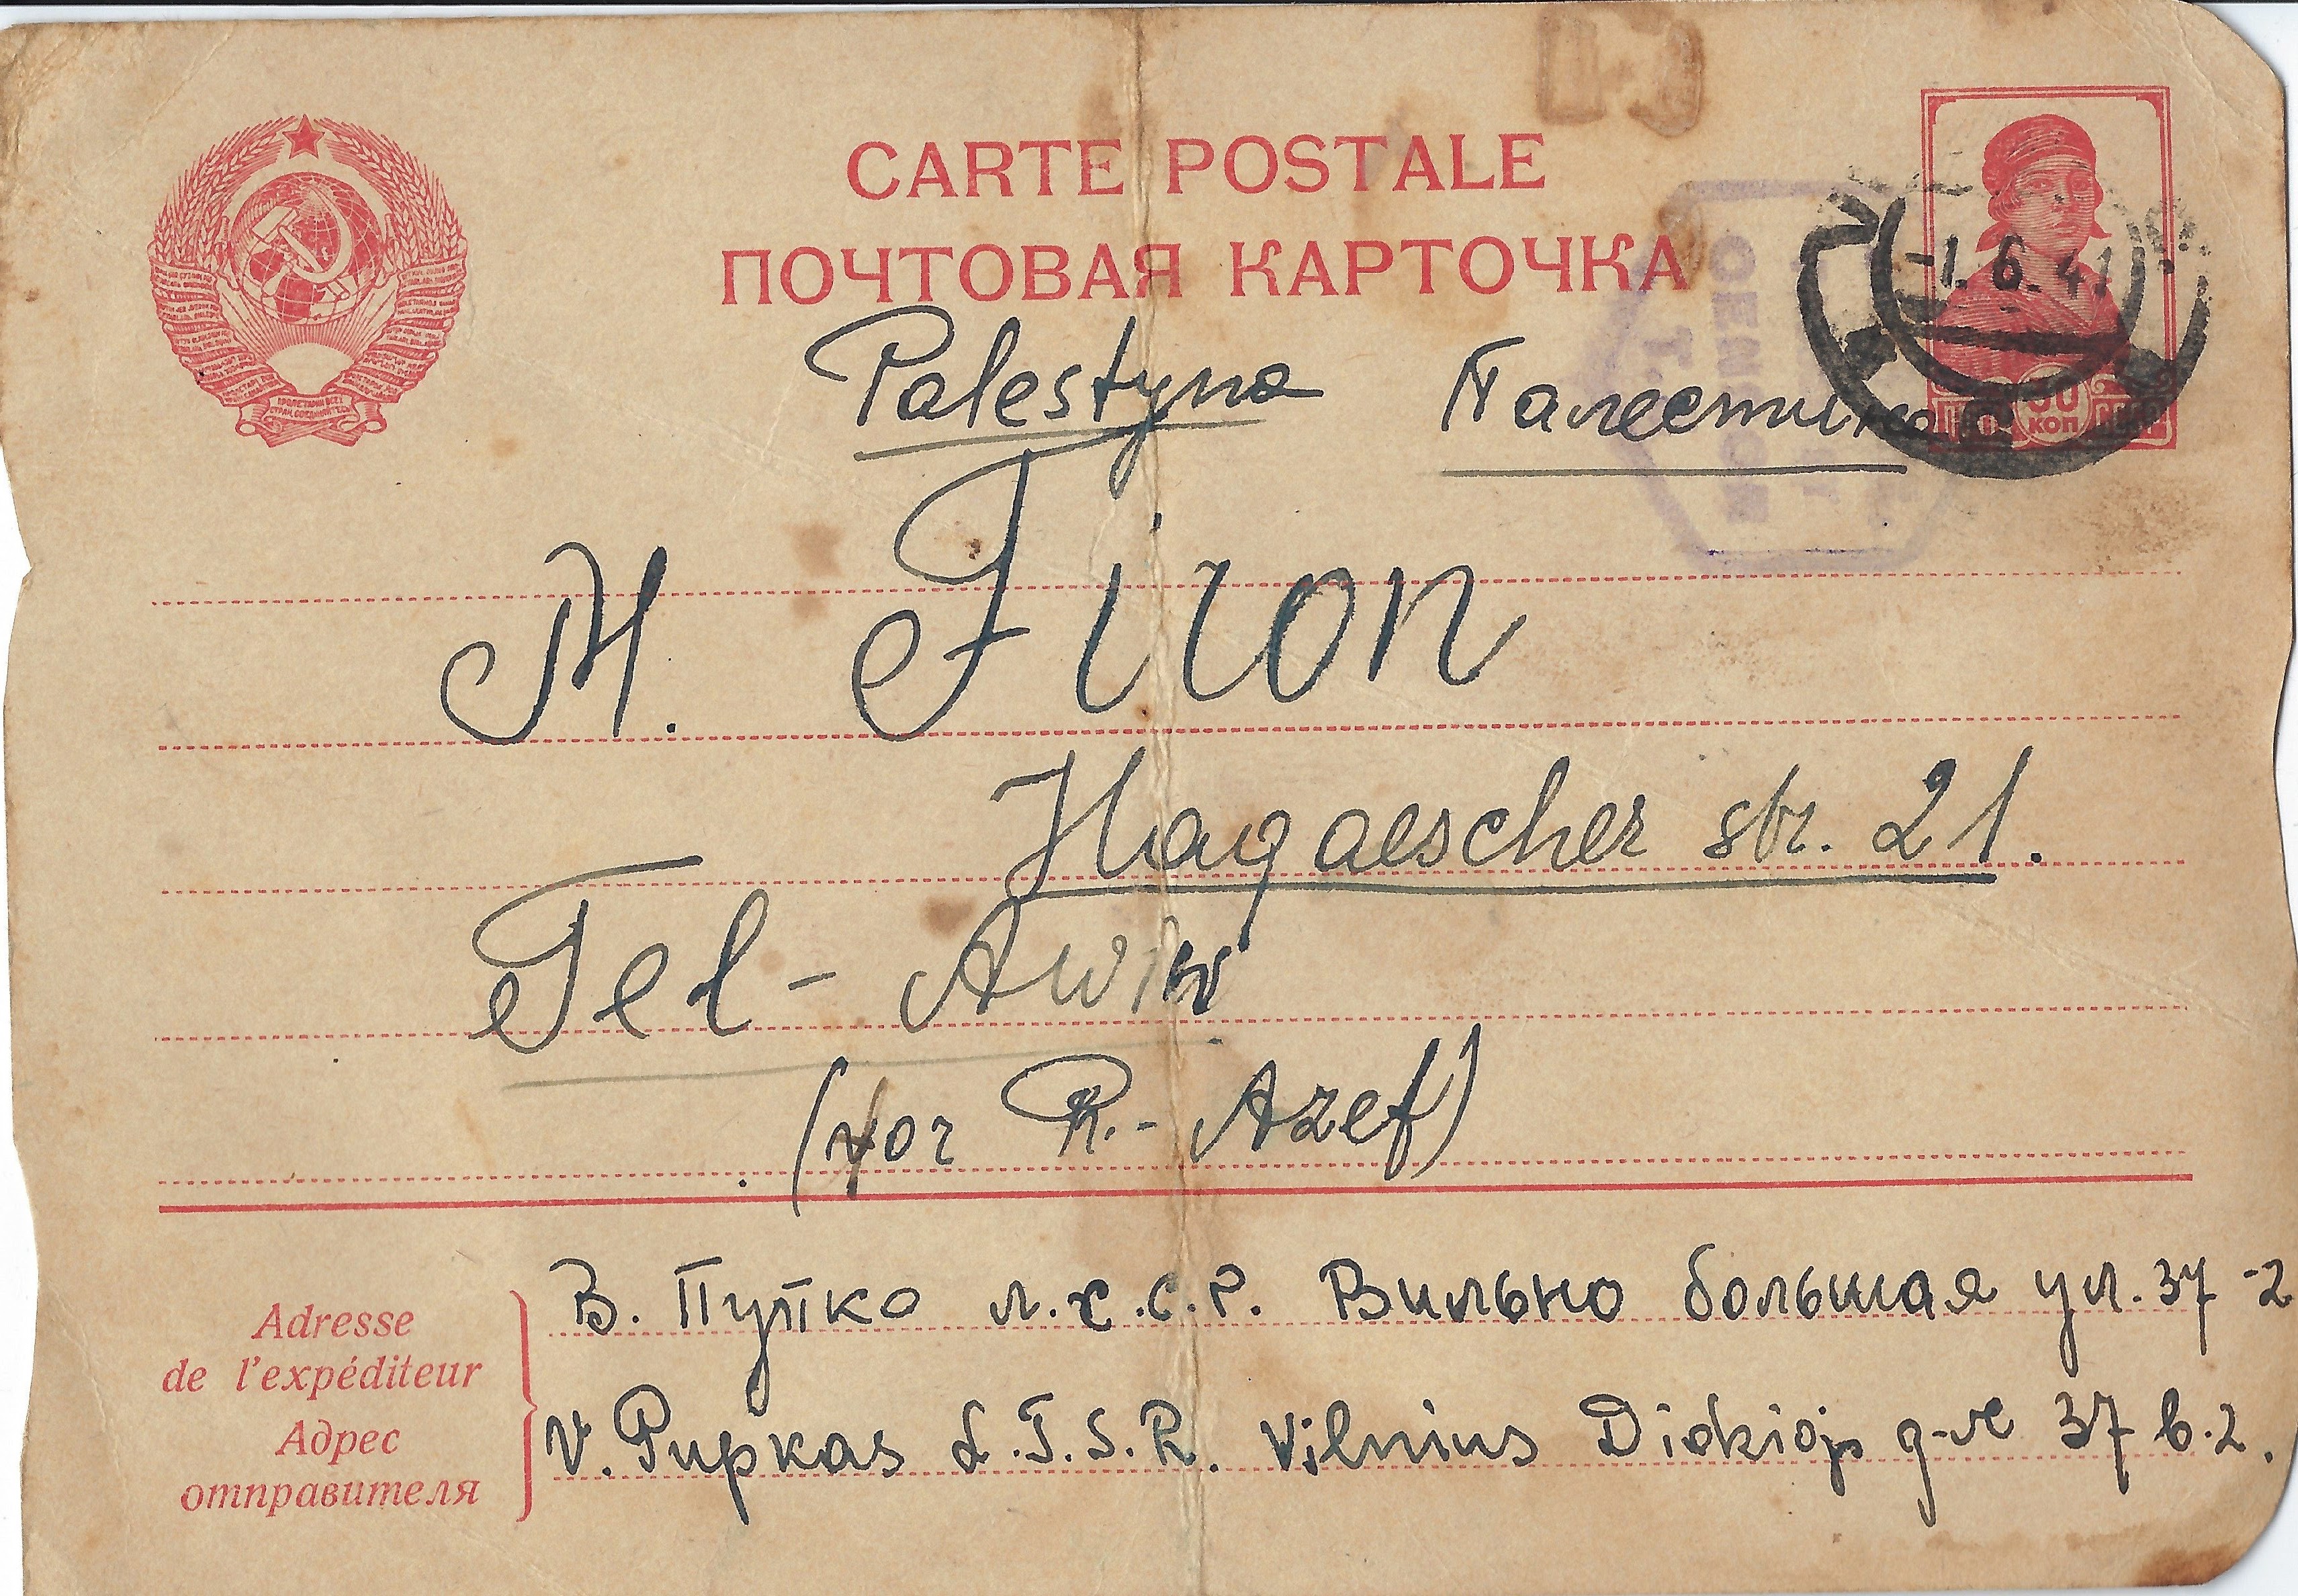 CARTE POSTALE
ПОЧТОВАЯ КАРТОЧКА
-1. 6. 41
КОП
Palestyna Палестина
M. Firon
Hagaescher str. 21.
Tel-Awiw
(vor R.- Azef)
Adresse
de l'expéditeur
Адрес
отправителя
В. Пупко л.с.с.р. Вильно большая ул. 37 -2
V. Pupkas L.T.S.R. Vilnius Didžioji g-vė 37 b.2.